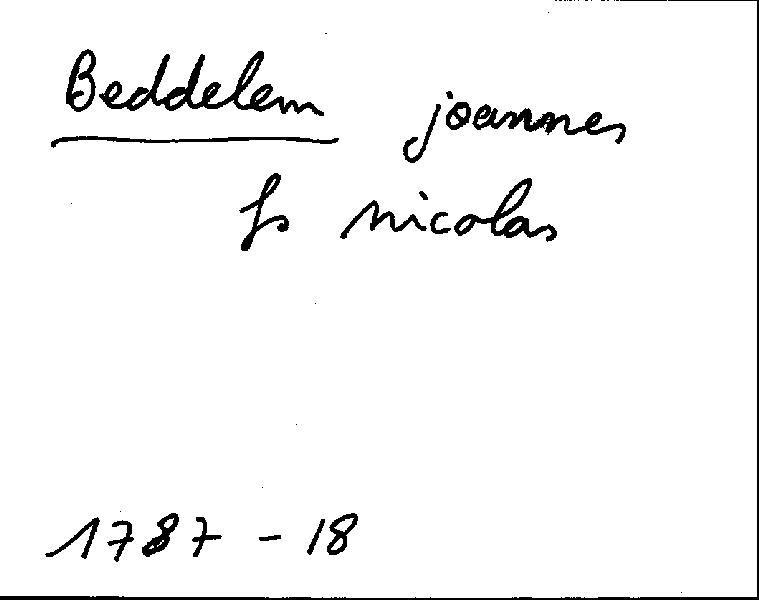 Beddelem joannes
fs nicolas
1787 - 18